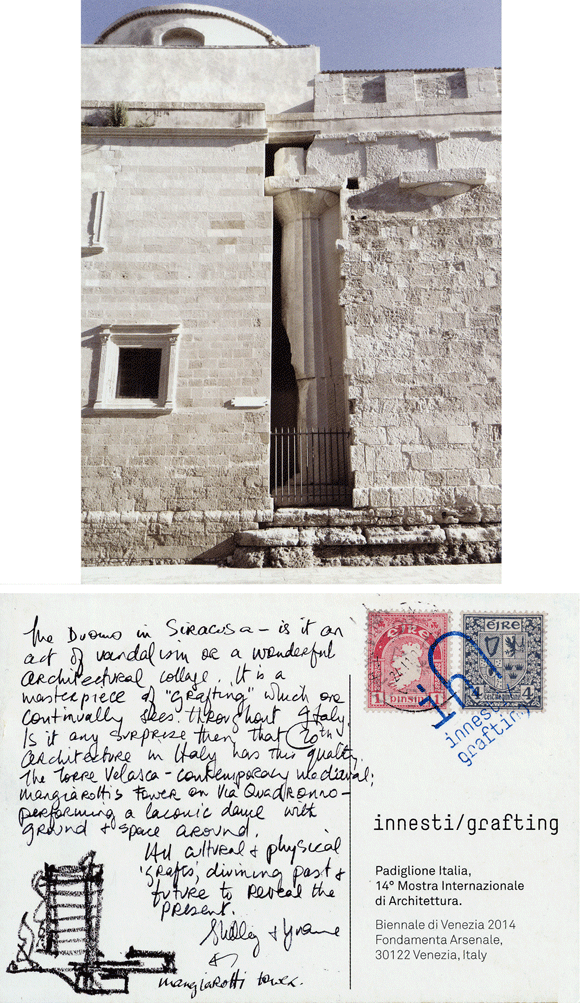 The Duomo in Siracusa – is it an
act of vandalism or a wonderful
architectural collage. It is a
masterpiece of "grafting" which one
continually sees throughout Italy.
Is it any surprise then that 20th
architecture in Italy has this quality.
The Torre Velasca – contemporary medieval;
mangiarotti's tower on Via Quadronno –
performing a laconic dance with
ground & space around.
All cultural & physical
'grafts', divining past &
future to reveal the
present.
Shelley & Yvonne
mangiarotti tower.
ÉIRE
1
PINGIN
1
ÉIRE
4
4
innesti/
grafting
innesti/grafting
Padiglione Italia,
14° Mostra Internazionale
di Architettura.
Biennale di Venezia 2014
Fondamenta Arsenale,
30122 Venezia, Italy